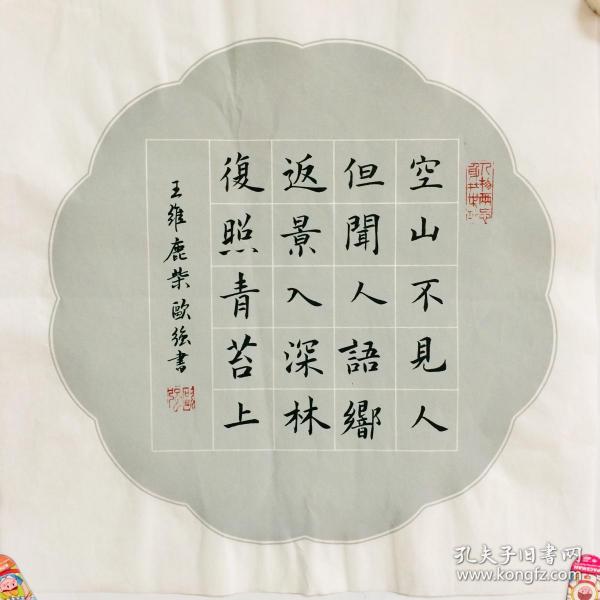 空山不見人
但聞人語響
返景入深林
復照青苔上
王維鹿柴歐強書
孔夫子旧书网
www.kongfz.com